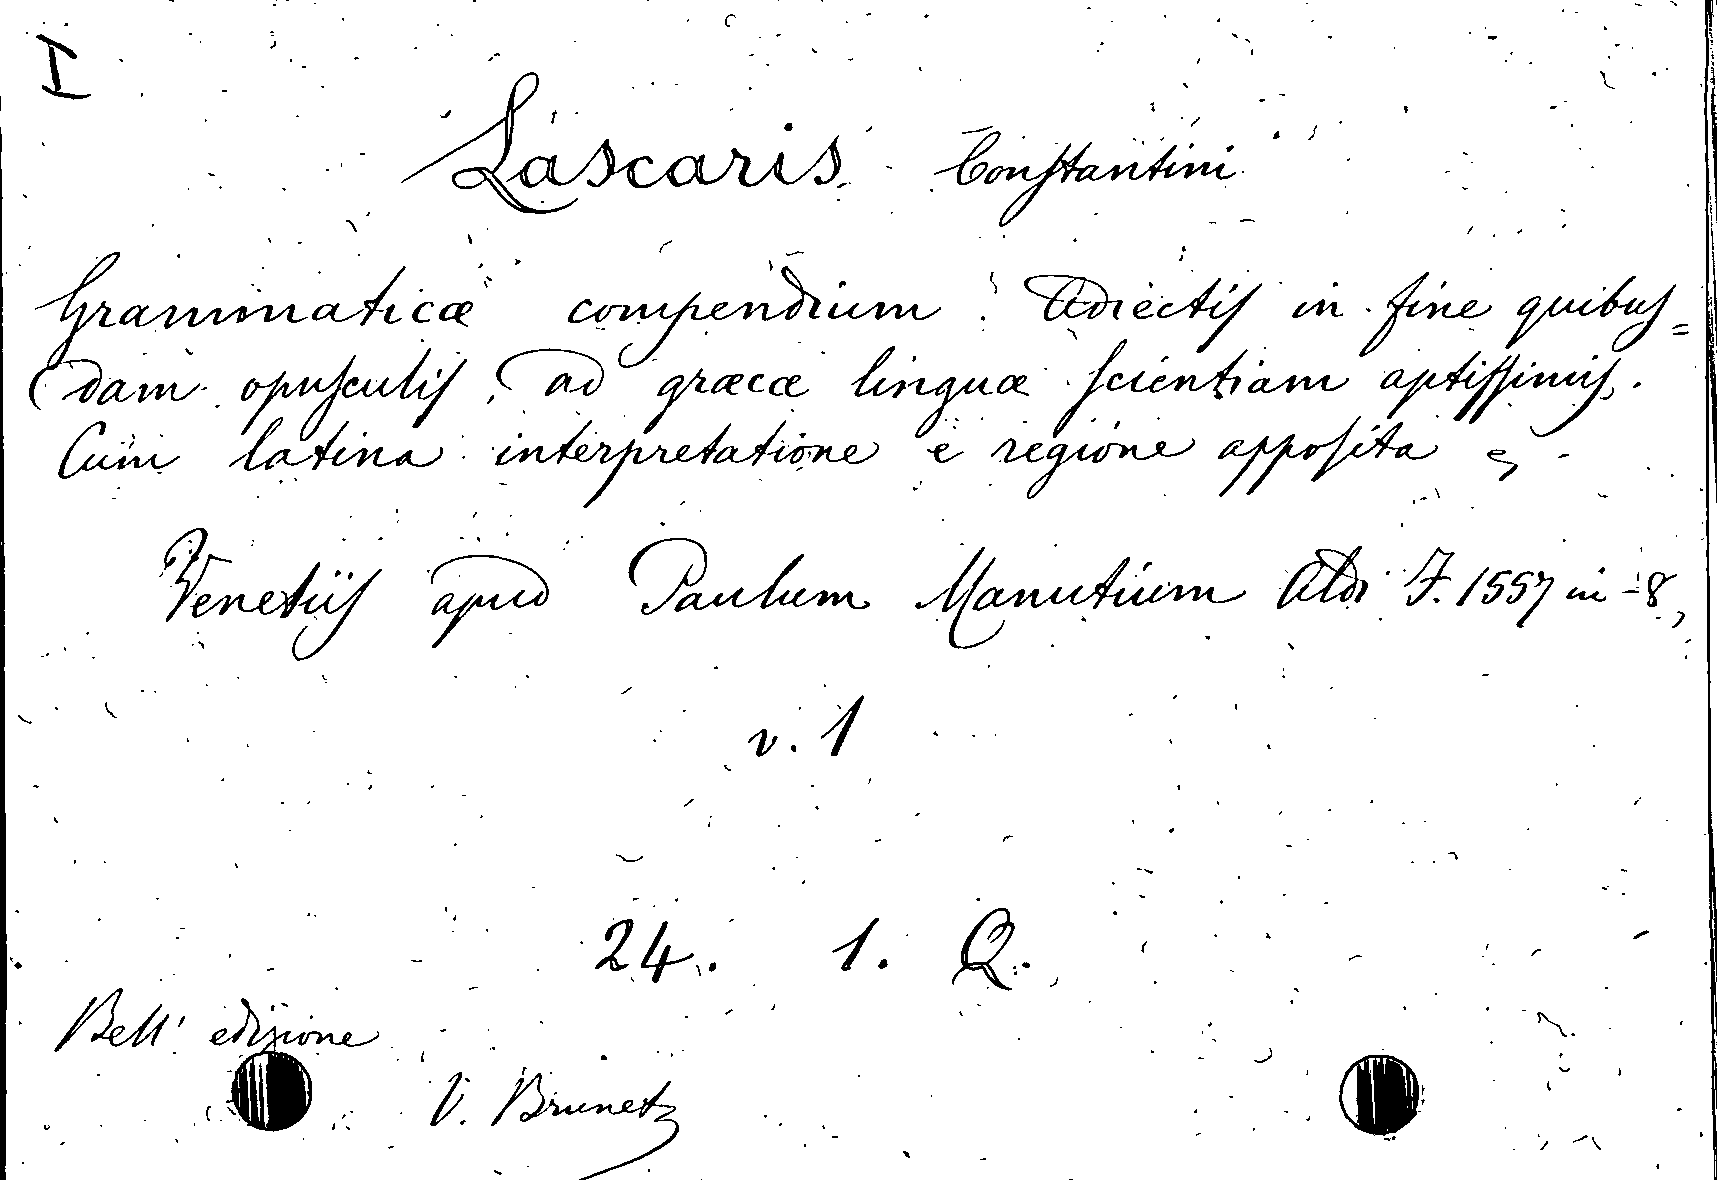 I
Lascaris Constantini
Grammaticæ compendium. Adiectis in fine quibus=
dam opusculis, ad græcæ linguæ scientiam aptissimis.
Cum latina interpretatione e regione apposita
Venetiis apud Paulum Manutium Aldi F. 1557 in-8,
v. 1
24. 1. Q.
Bell' edizione
V. Brunet